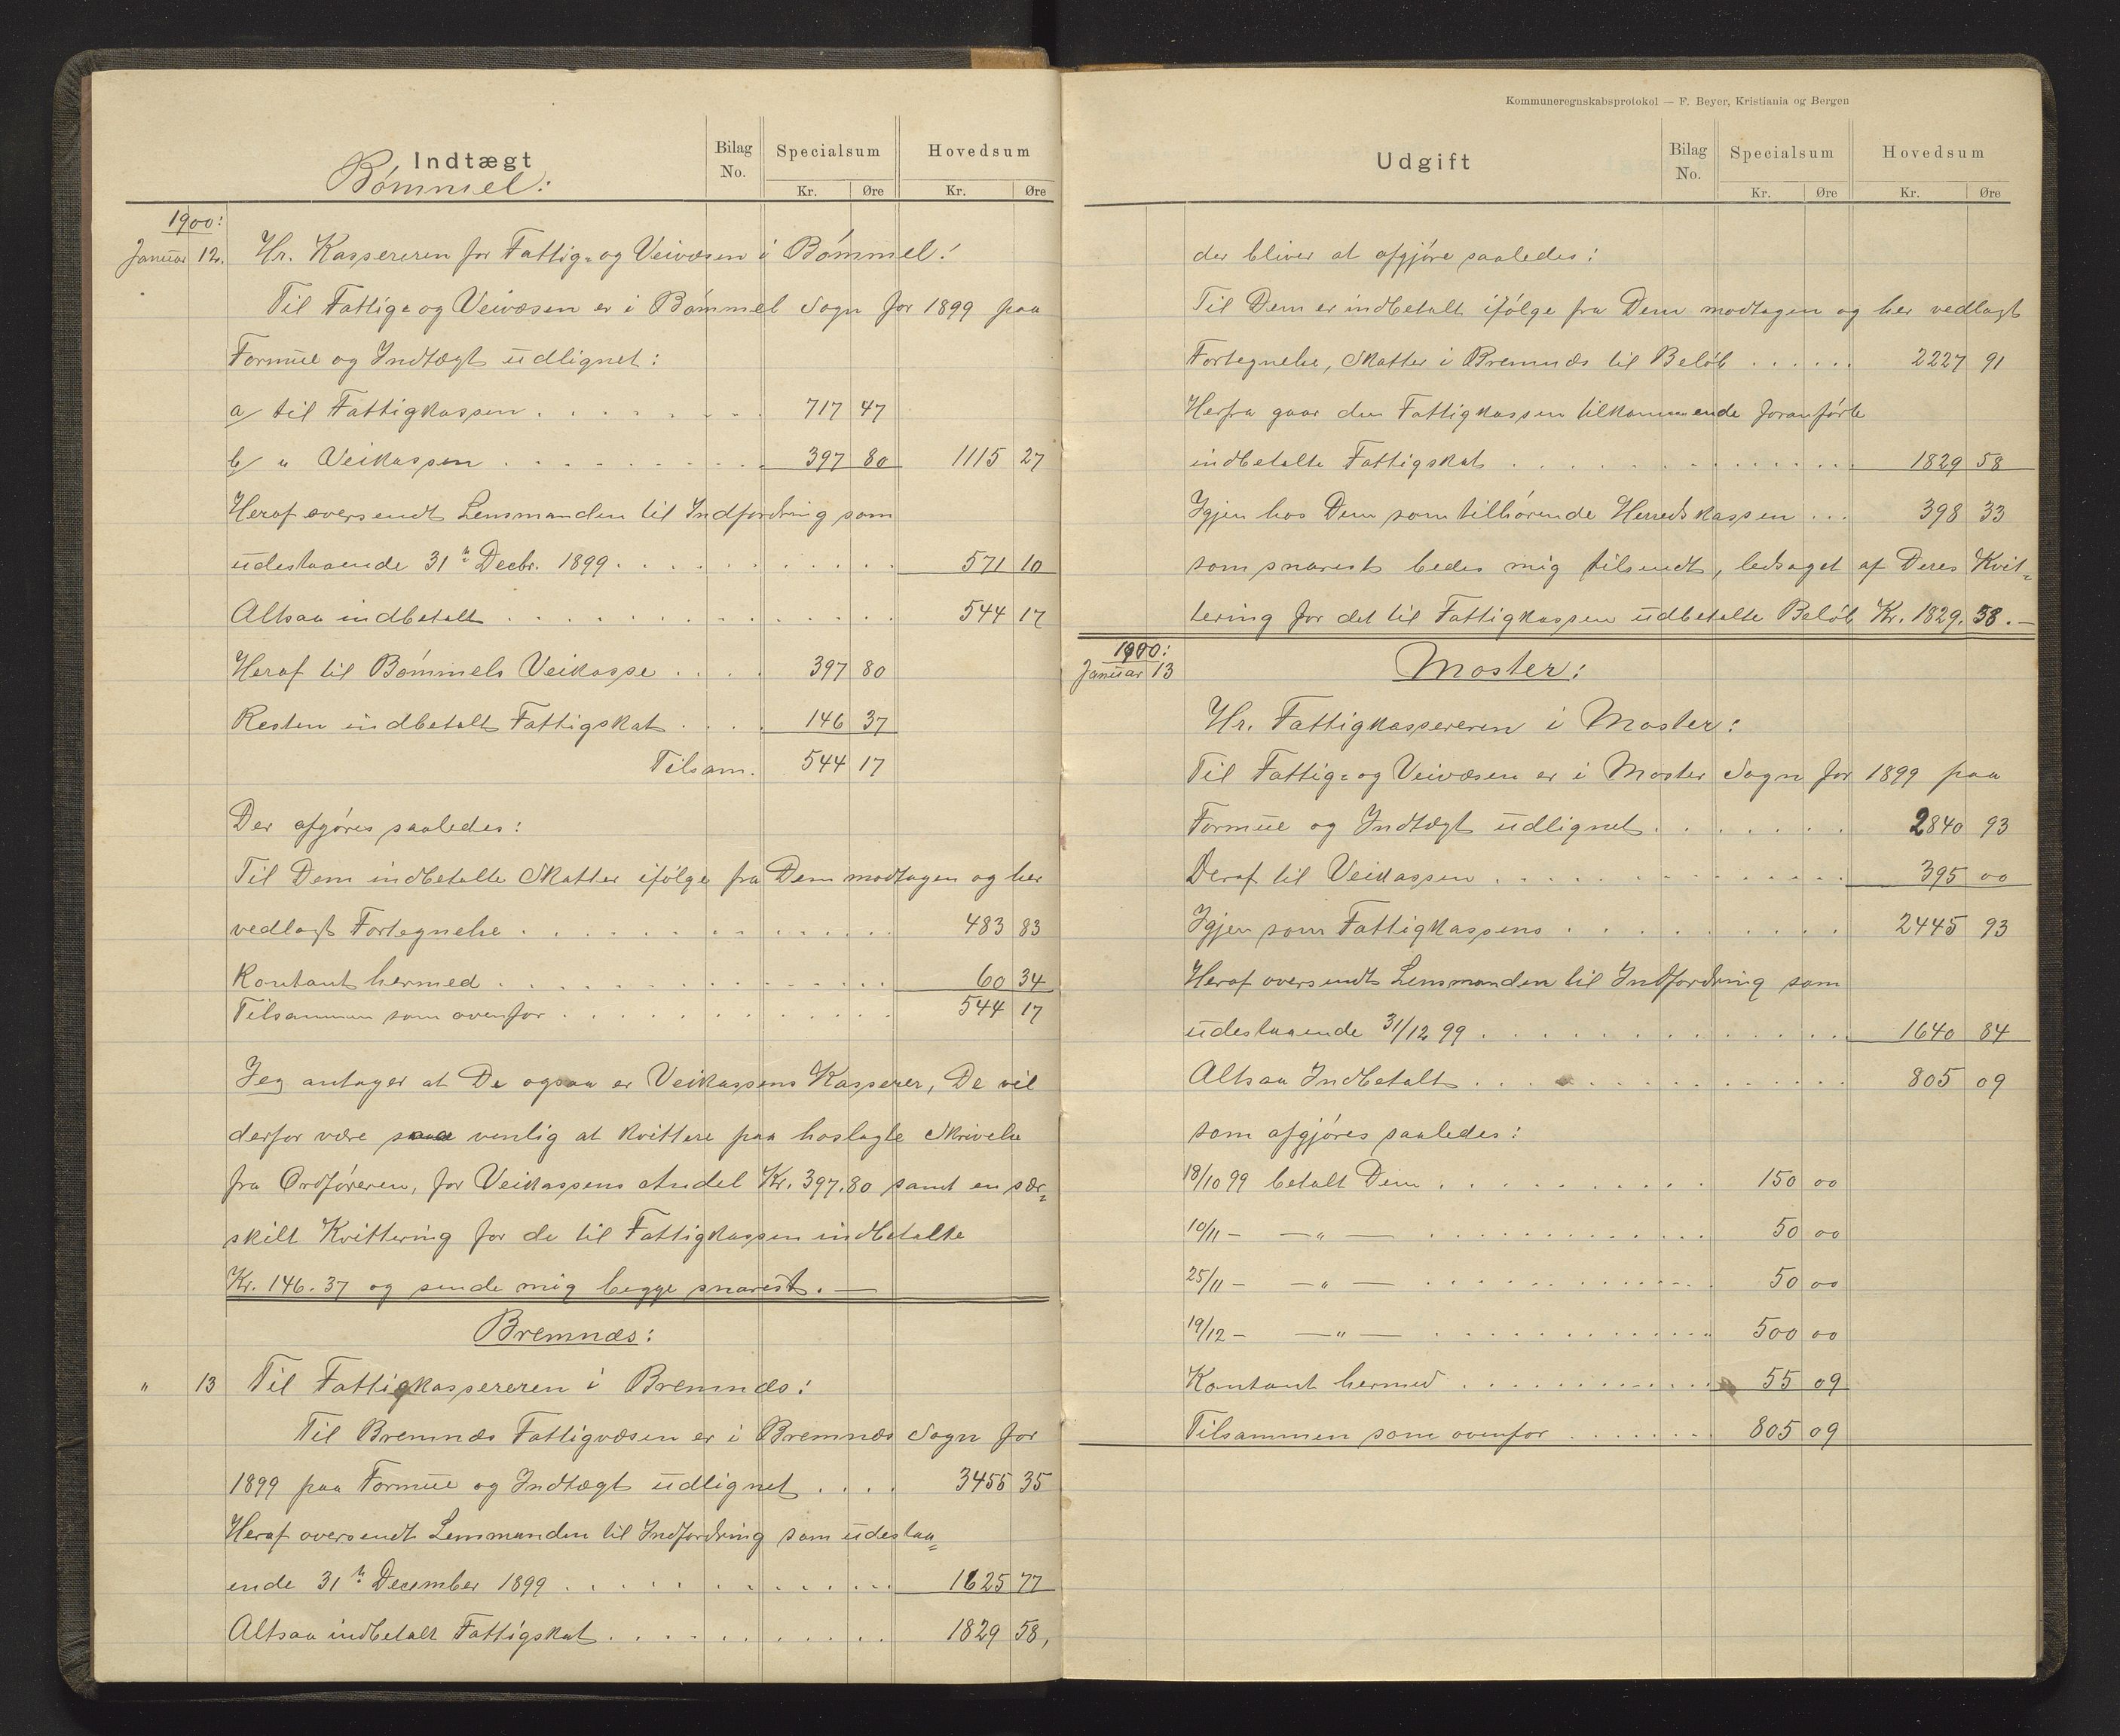 Indtægt Bilag No. Specialsum Kr. Øre Hovedsum Kr. Øre
Bömmel:
1900:
Januar 12. Hr. Kassereren for Fattig- og Veivæsen i Bömmel!
Til Fattig- og Veivæsen er i Bömmel Sogn for 1899 paa
Formue og Indtægt udlignet:
a/ til Fattigkassen . . . . . . . . 717 47
b/ " Veikassen . . . . . . . . . 397 80 1115 27
Heraf oversendt Lensmanden til Indfordring som
udestaaende 31te Decbr. 1899 . . . . . . . . . . 571 10
Altsaa indbetalt . . . . . . . . . . . . 544 17
Heraf til Bömmels Veikasse . . . . 397 80
Resten indbetalt Fattigskat . . . . 146 37
Tilsam. 544 17
Der afgöres saaledes:
Til Dem indbetalte Skatter ifölge fra Dem modtagen og her
vedlagt Fortegnelse . . . . . . . . . . . . 483 83
Kontant hermed . . . . . . . . . . . . 60 34
Tilsammen som ovenfor . . . . . . . . . . . 544 17
Jeg antager at De ogsaa er Veikassens Kasserer, De vil
derfor være saa venlig at kvittere paa hoslagte Skrivelse
fra Ordföreren, for Veikassens Andel Kr. 397.80 samt en sær=
skilt Kvittering for de til Fattigkassen indbetalte
Kr. 146.37 og sende mig begge snarest. —
Bremnæs:
" 13 Til Fattigkassereren i Bremnæs:
Til Bremnæs Fattigvæsen er i Bremnæs Sogn for
1899 paa Formue og Indtægt udlignet . . . . 3455 35
Heraf oversendt Lensmanden til Indfordring som udestaa=
ende 31te December 1899 . . . . . . . . . . 1625 77
Altsaa indbetalt Fattigskat . . . . . . . . . 1829 58,
Kommuneregnskabsprotokol — F. Beyer, Kristiania og Bergen
Udgift Bilag No. Specialsum Kr. Øre Hovedsum Kr. Øre
der bliver at afgjöre saaledes:
Til Dem er indbetalt ifölge fra Dem modtagen og her vedlagt
Fortegnelse, Skatter i Bremnæs til Belöb . . . . . . 2227 91
Herfra gaar den Fattigkassen tilkommende foranförte
indbetalte Fattigskat . . . . . . . . . . . . 1829 58
Igjen hos Dem som tilhörende Herredskassen . . . 398 33
som snarest bedes mig tilsendt, ledsaget af Deres Kvit=
tering for det til Fattigkassen udbetalte Belöb Kr. 1829.58. —
1900:
Januar 13 Moster:
Hr. Fattigkassereren i Moster:
Til Fattig- og Veivæsen er i Moster Sogn for 1899 paa
Formue og Indtægt udlignet . . . . . . . 2840 93
Deraf til Veikassen . . . . . . . . . . . . 395 00
Igjen som Fattigkassens . . . . . . . . . 2445 93
Heraf oversendt Lensmanden til Indfordring som
udestaaende 31/12 99 . . . . . . . . . . . . 1640 84
Altsaa Indbetalt . . . . . . . . . . . . 805 09
som afgjöres saaledes:
18/10 99 betalt Dem . . . . . . . . . . 150 00
10/11 – — " — . . . . . . . . . . . . 50 00
25/11 – — " — . . . . . . . . . . . . 50 00
19/12 – — " — . . . . . . . . . . . . 500 00
Kontant hermed . . . . . . . . . . . 55 09
Tilsammen som ovenfor . . . . . . . 805 09